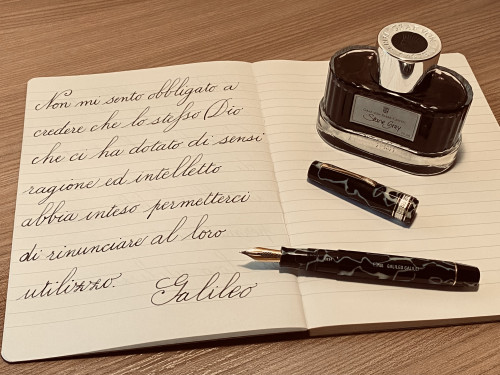 Non mi sento obbligato a
credere che lo stesso Dio
che ci ha dotato di sensi
ragione ed intelletto
abbia inteso permetterci
di rinunciare al loro
utilizzo.
Galileo